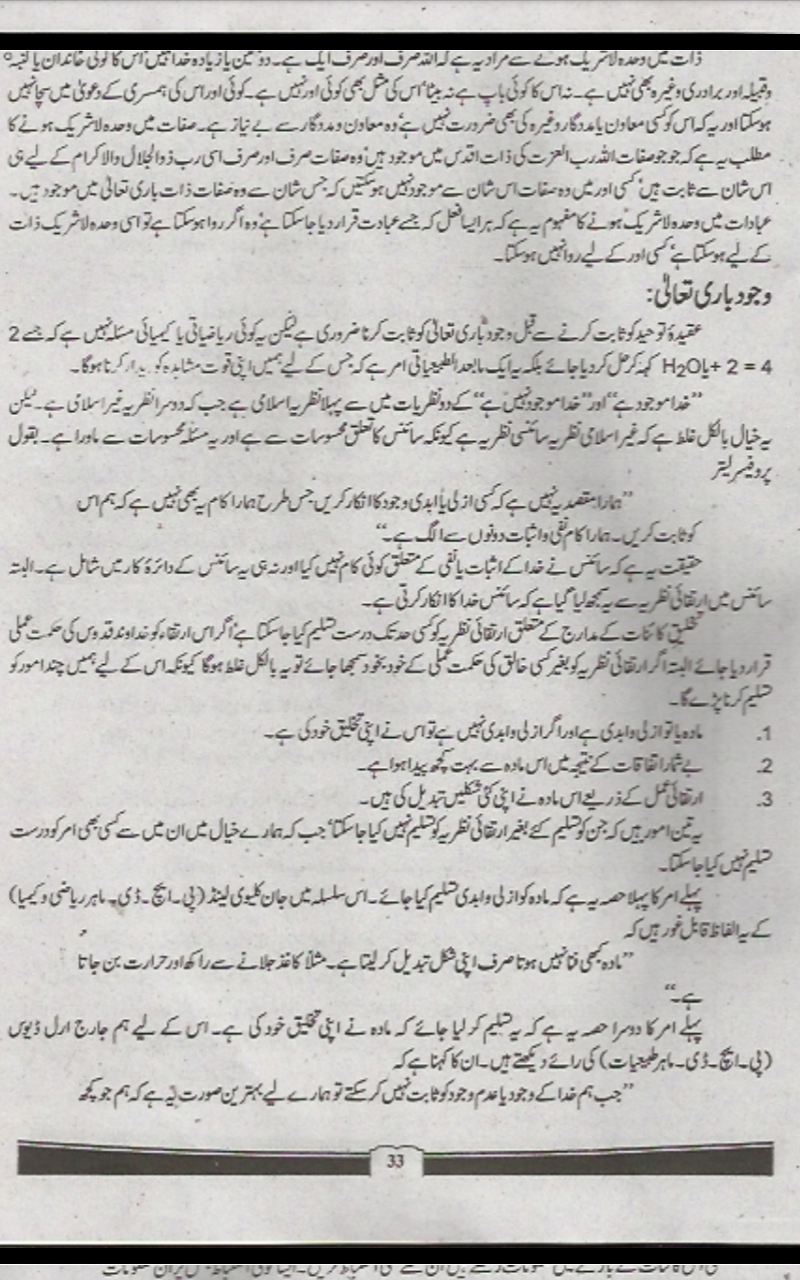 ذات میں وحدہ لاشریک ہونے سے مراد یہ ہے کہ اللہ صرف اور صرف ایک ہے۔ دو تین یا زیادہ خدا نہیں اس کا کوئی خاندان یا کنبہ
وقبیلہ اور برادری وغیرہ بھی نہیں ہے۔ نہ اس کا کوئی باپ ہے نہ بیٹا، اس کی مثل بھی کوئی اور نہیں ہے۔ کوئی اور اس کی ہمسری کے دعویٰ میں سچا نہیں
ہوسکتا اور یہ کہ اس کو کسی معاون یا مددگار وغیرہ کی بھی ضرورت نہیں ہے، وہ معاون و مددگار سے بے نیاز ہے۔ صفات میں وحدہ لاشریک ہونے کا
مطلب یہ ہے کہ جو جو صفات اللہ رب العزت کی ذات اقدس میں موجود ہیں، وہ صفات صرف اور صرف اسی رب ذوالجلال والاکرام کے لیے ہی
اس شان سے ثابت ہیں، کسی اور میں وہ صفات اس شان سے موجود نہیں ہوسکتیں کہ جس شان سے وہ صفات ذات باری تعالیٰ میں موجود ہیں۔
عبادات میں وحدہ لاشریک ہونے کا مفہوم یہ ہے کہ ہر ایسا فعل کہ جسے عبادت قرار دیا جاسکتا ہے، وہ اگر روا ہوسکتا ہے تو اسی وحدہ لاشریک ذات
کے لیے ہوسکتا ہے، کسی اور کے لیے روا نہیں ہوسکتا۔
وجود باری تعالیٰ:
عقیدۂ توحید کو ثابت کرنے سے قبل وجود باری تعالیٰ کو ثابت کرنا ضروری ہے لیکن یہ کوئی ریاضیاتی یا کیمیائی مسئلہ نہیں ہے کہ جسے 2
+ 2 = 4 یا H₂O کہہ کر حل کر دیا جائے بلکہ یہ ایک مابعد الطبیعیاتی امر ہے کہ جس کے لیے ہمیں اپنی قوت مشاہدہ کو بیدار کرنا ہوگا۔
"خدا موجود ہے" اور "خدا موجود نہیں ہے" کے دو نظریات میں سے پہلا نظریہ اسلامی ہے جب کہ دوسرا نظریہ غیر اسلامی ہے۔ لیکن
یہ خیال بالکل غلط ہے کہ غیر اسلامی نظریہ سائنسی نظریہ ہے کیونکہ سائنس کا تعلق محسوسات سے ہے اور یہ مسئلہ محسوسات سے ماورا ہے۔ بقول
پروفیسر لیتر
"ہمارا مقصد یہ نہیں ہے کہ کسی ازلی یا ابدی وجود کا انکار کریں جس طرح ہمارا کام یہ بھی نہیں ہے کہ ہم اس
کو ثابت کریں۔ ہمارا کام نفی و اثبات دونوں سے الگ ہے۔"
حقیقت یہ ہے کہ سائنس نے خدا کے اثبات یا نفی کے متعلق کوئی کام نہیں کیا اور نہ ہی یہ سائنس کے دائرۂ کار میں شامل ہے۔ البتہ
سائنس میں ارتقائی نظریہ سے یہ سمجھ لیا گیا ہے کہ سائنس خدا کا انکار کرتی ہے۔
تخلیق کائنات کے مدارج کے متعلق ارتقائی نظریہ کو کسی حد تک درست تسلیم کیا جاسکتا ہے، اگر اس ارتقاء کو خداوند قدوس کی حکمت عملی
قرار دیا جائے البتہ اگر ارتقائی نظریہ کو بغیر کسی خالق کی حکمت عملی کے خود بخود سمجھا جائے تو یہ بالکل غلط ہوگا کیونکہ اس کے لیے ہمیں چند امور کو
تسلیم کرنا پڑے گا۔
1. مادہ یا تو ازلی و ابدی ہے اور اگر ازلی و ابدی نہیں ہے تو اس نے اپنی تخلیق خود کی ہے۔
2. بے شمار اتفاقات کے نتیجہ میں اس مادہ سے بہت کچھ پیدا ہوا ہے۔
3. ارتقائی عمل کے ذریعے اس مادہ نے اپنی کئی شکلیں تبدیل کی ہیں۔
یہ تین امور ہیں کہ جن کو تسلیم کئے بغیر ارتقائی نظریہ کو تسلیم نہیں کیا جاسکتا، جب کہ ہمارے خیال میں ان میں سے کسی بھی امر کو درست
تسلیم نہیں کیا جاسکتا۔
پہلے امر کا پہلا حصہ یہ ہے کہ مادہ کو ازلی و ابدی تسلیم کیا جائے۔ اس سلسلہ میں جان کلیوی لینڈ (پی۔ ایچ۔ ڈی۔ ماہر ریاضی و کیمیا)
کے یہ الفاظ قابل غور ہیں کہ
"مادہ کبھی فنا نہیں ہوتا صرف اپنی شکل تبدیل کر لیتا ہے۔ مثلاً کاغذ جلانے سے راکھ اور حرارت بن جاتا
ہے۔"
پہلے امر کا دوسرا حصہ یہ ہے کہ یہ تسلیم کر لیا جائے کہ مادہ نے اپنی تخلیق خود کی ہے۔ اس کے لیے ہم جارج ارل ڈیوس
(پی۔ ایچ۔ ڈی۔ ماہر طبیعیات) کی رائے دیکھتے ہیں۔ ان کا کہنا ہے کہ
"جب ہم خدا کے وجود یا عدم وجود کو ثابت نہیں کر سکتے تو ہمارے لیے بہترین صورت یہ ہے کہ ہم جو کچھ
33